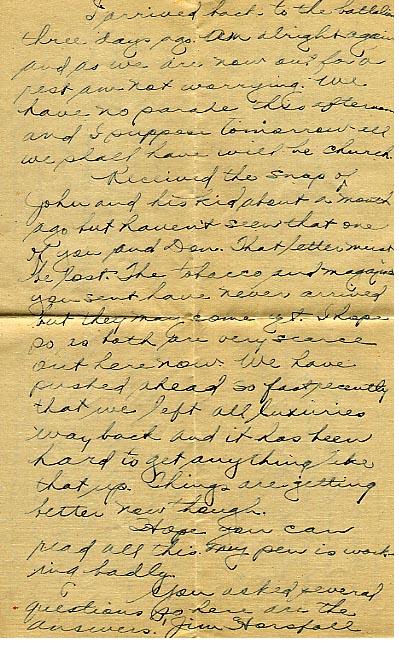 I arrived back to the battalion
three days ago. Am alright again
and as we are now out for a
rest am not worrying. We
have no parade this afternoon
and I suppose tomorrow all
we shall have will be church.
Received the snap of
John and his kid about a month
ago but haven't seen that one
of you and Don. That letter must
be lost. The tobacco and magazines
you sent have never arrived
but they may come yet. I hope
so as both are very scarce
out here now. We have
pushed ahead so fast recently
that we left all luxuries
way back and it has been
hard to get anything like
that up. Things are getting
better now though.
Hope you can
read all this. My pen is work-
ing badly.
You asked several
questions so here are the
answers. Jim Horsfall